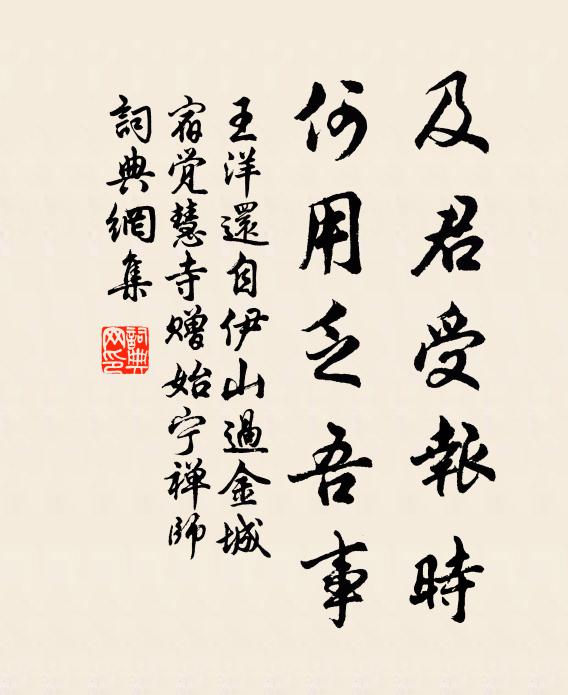 及君受報時
何用乏吾事
王洋還自伊山過金城
宿觉慧寺赠始宁禅師
詞典網集
詞典网印